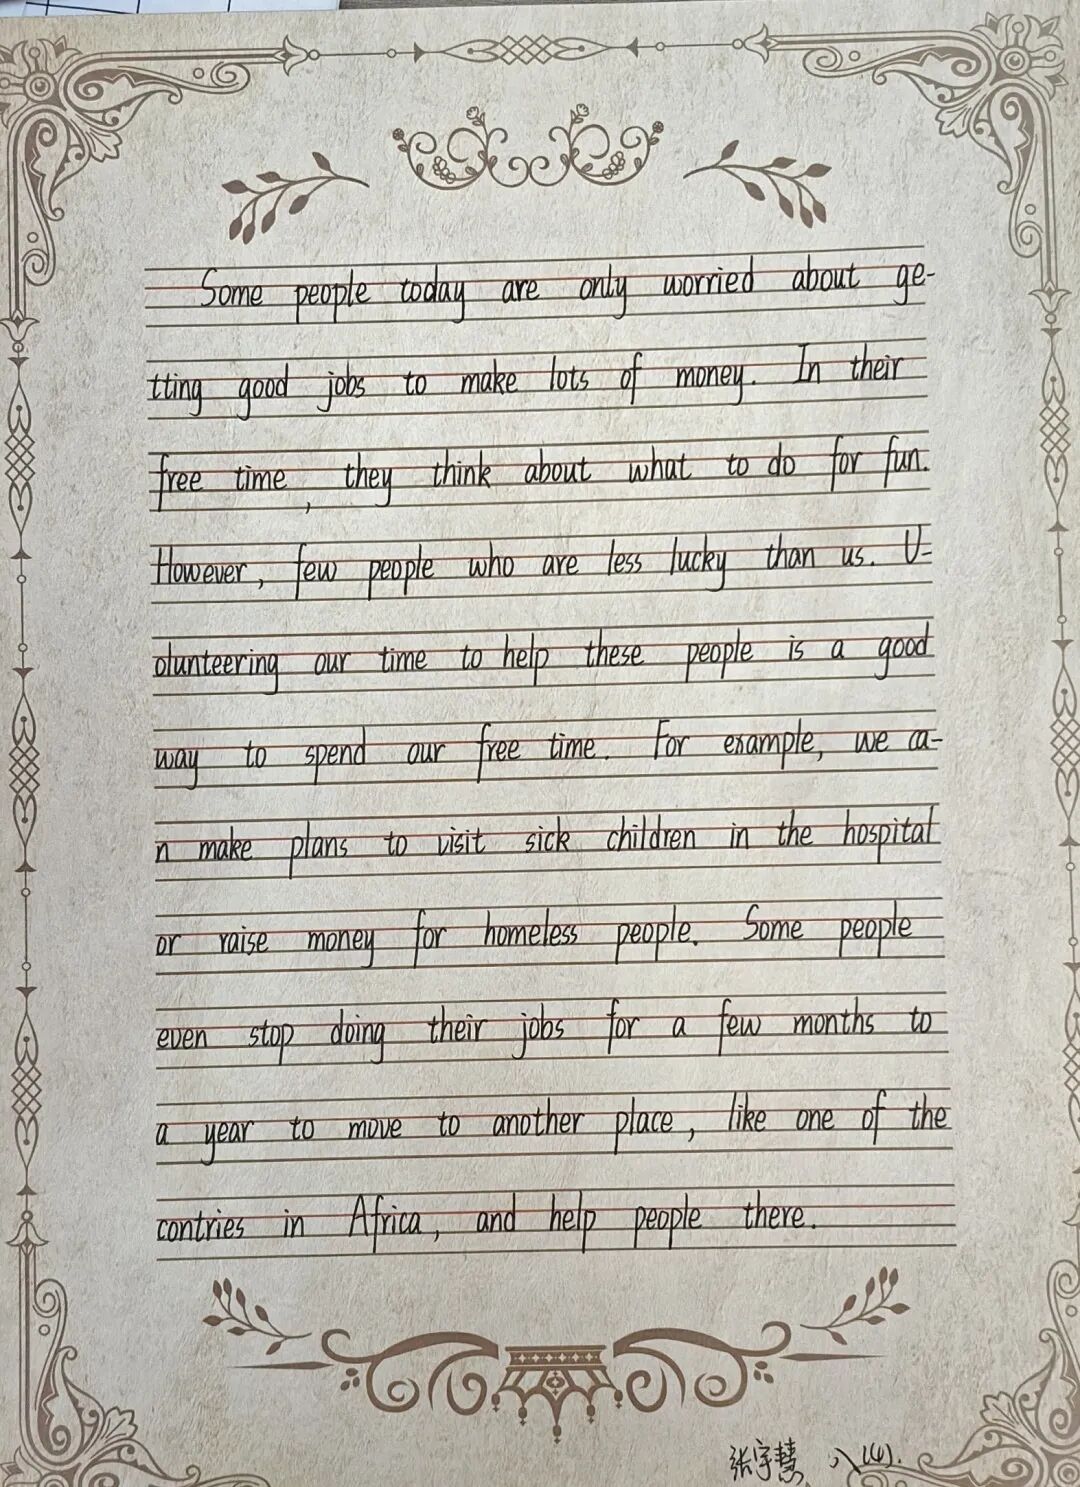 Some people today are only worried about ge-
tting good jobs to make lots of money. In their
free time, they think about what to do for fun.
However, few people who are less lucky than us. V-
olunteering our time to help these people is a good
way to spend our free time. For example, we ca-
n make plans to visit sick children in the hospital
or raise money for homeless people. Some people
even stop doing their jobs for a few months to
a year to move to another place, like one of the
contries in Africa, and help people there.
张宇慧 八(4).